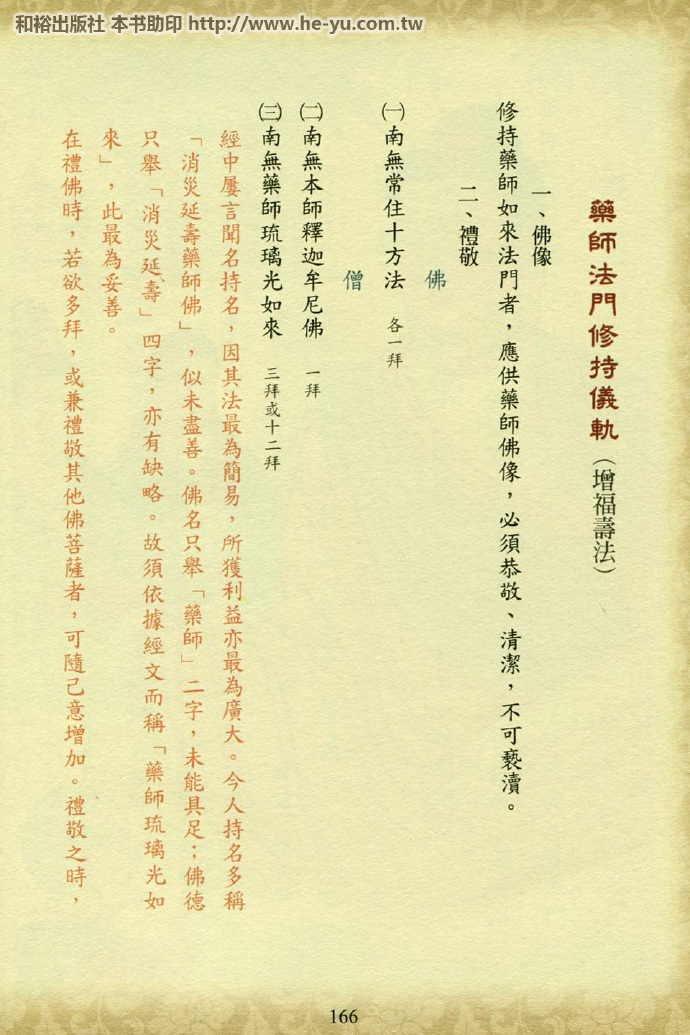 和裕出版社 本书助印 http://www.he-yu.com.tw
藥師法門修持儀軌（增福壽法）
一、佛像
修持藥師如來法門者，應供藥師佛像，必須恭敬、清潔，不可褻瀆。
二、禮敬
佛
㈠南無常住十方法 各一拜
僧
㈡南無本師釋迦牟尼佛 一拜
㈢南無藥師琉璃光如來 三拜或十二拜
經中屢言聞名持名，因其法最為簡易，所獲利益亦最為廣大。今人持名多稱
「消災延壽藥師佛」，似未盡善。佛名只舉「藥師」二字，未能具足；佛德
只舉「消災延壽」四字，亦有缺略。故須依據經文而稱「藥師琉璃光如
來」，此最為妥善。
在禮佛時，若欲多拜，或兼禮敬其他佛菩薩者，可隨己意增加。禮敬之時，
166